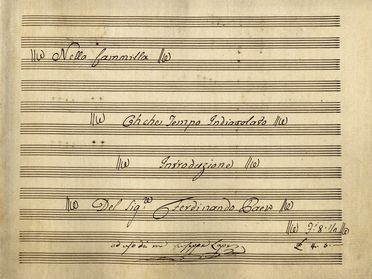 Nella Cammilla
Oh che Tempo Indiavolato
Introduzione
Del Sig.re Ferdinando Paer
ad uso di me
£ 4. 5